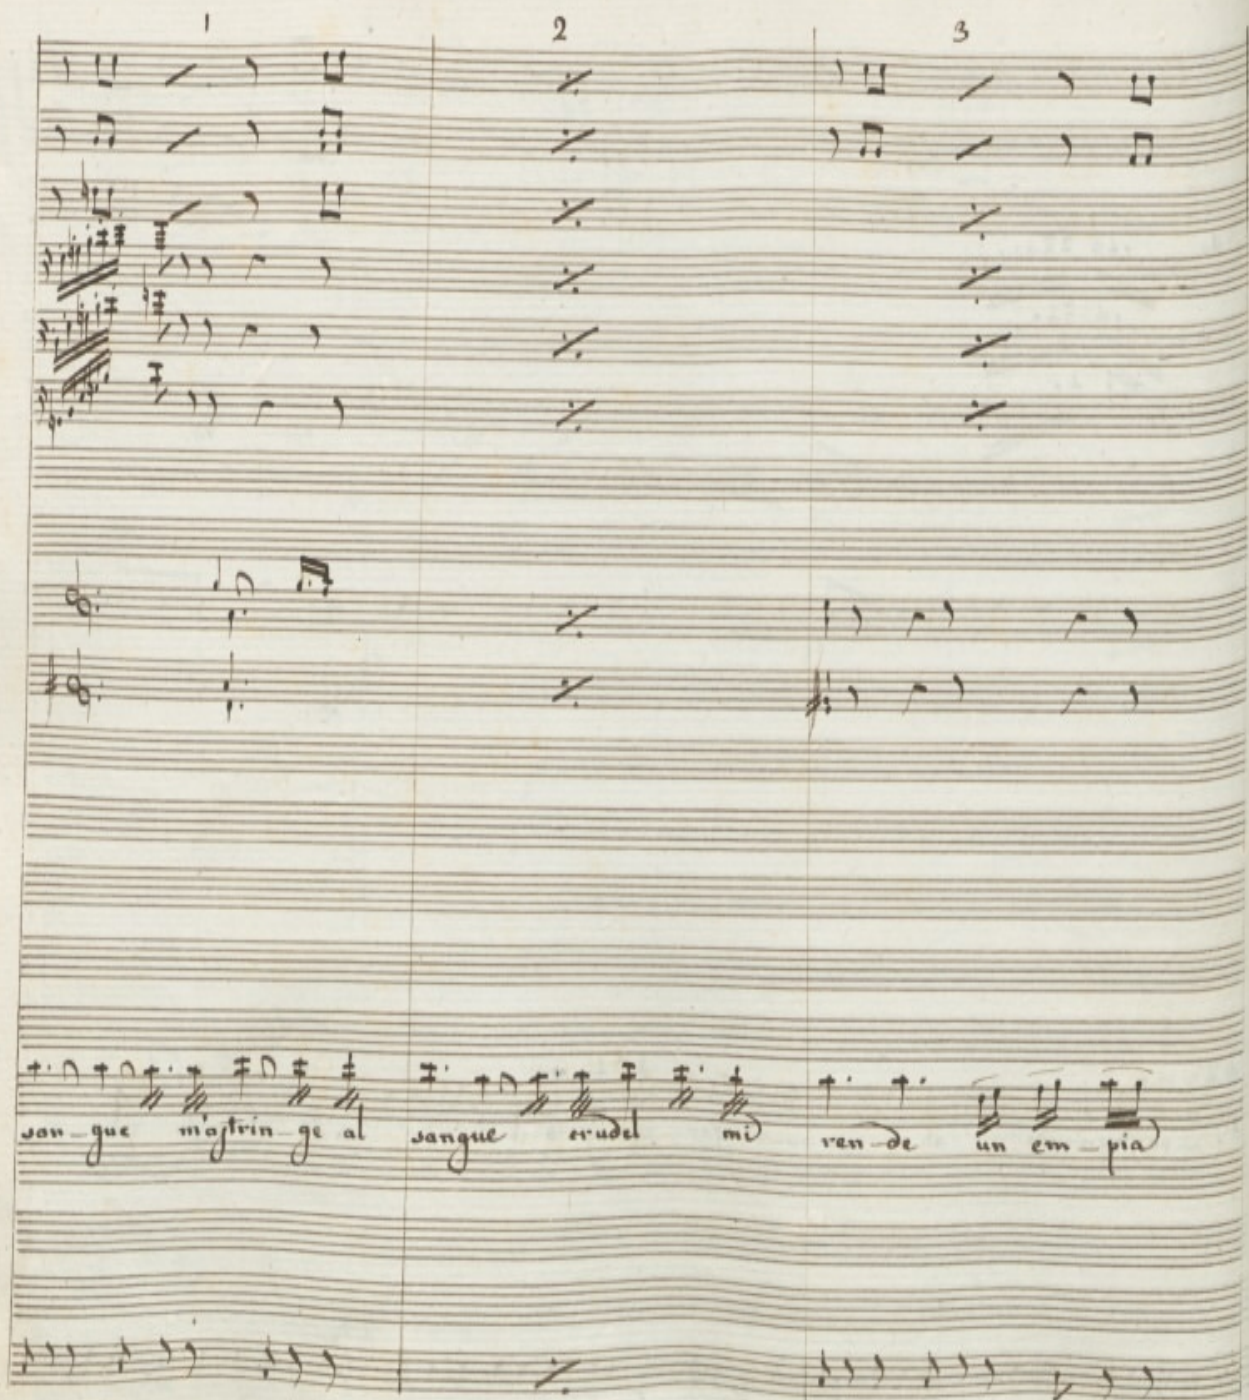 1 2 3
san-gue m'astrin-ge al sangue crudel mi ren-de un em-pia